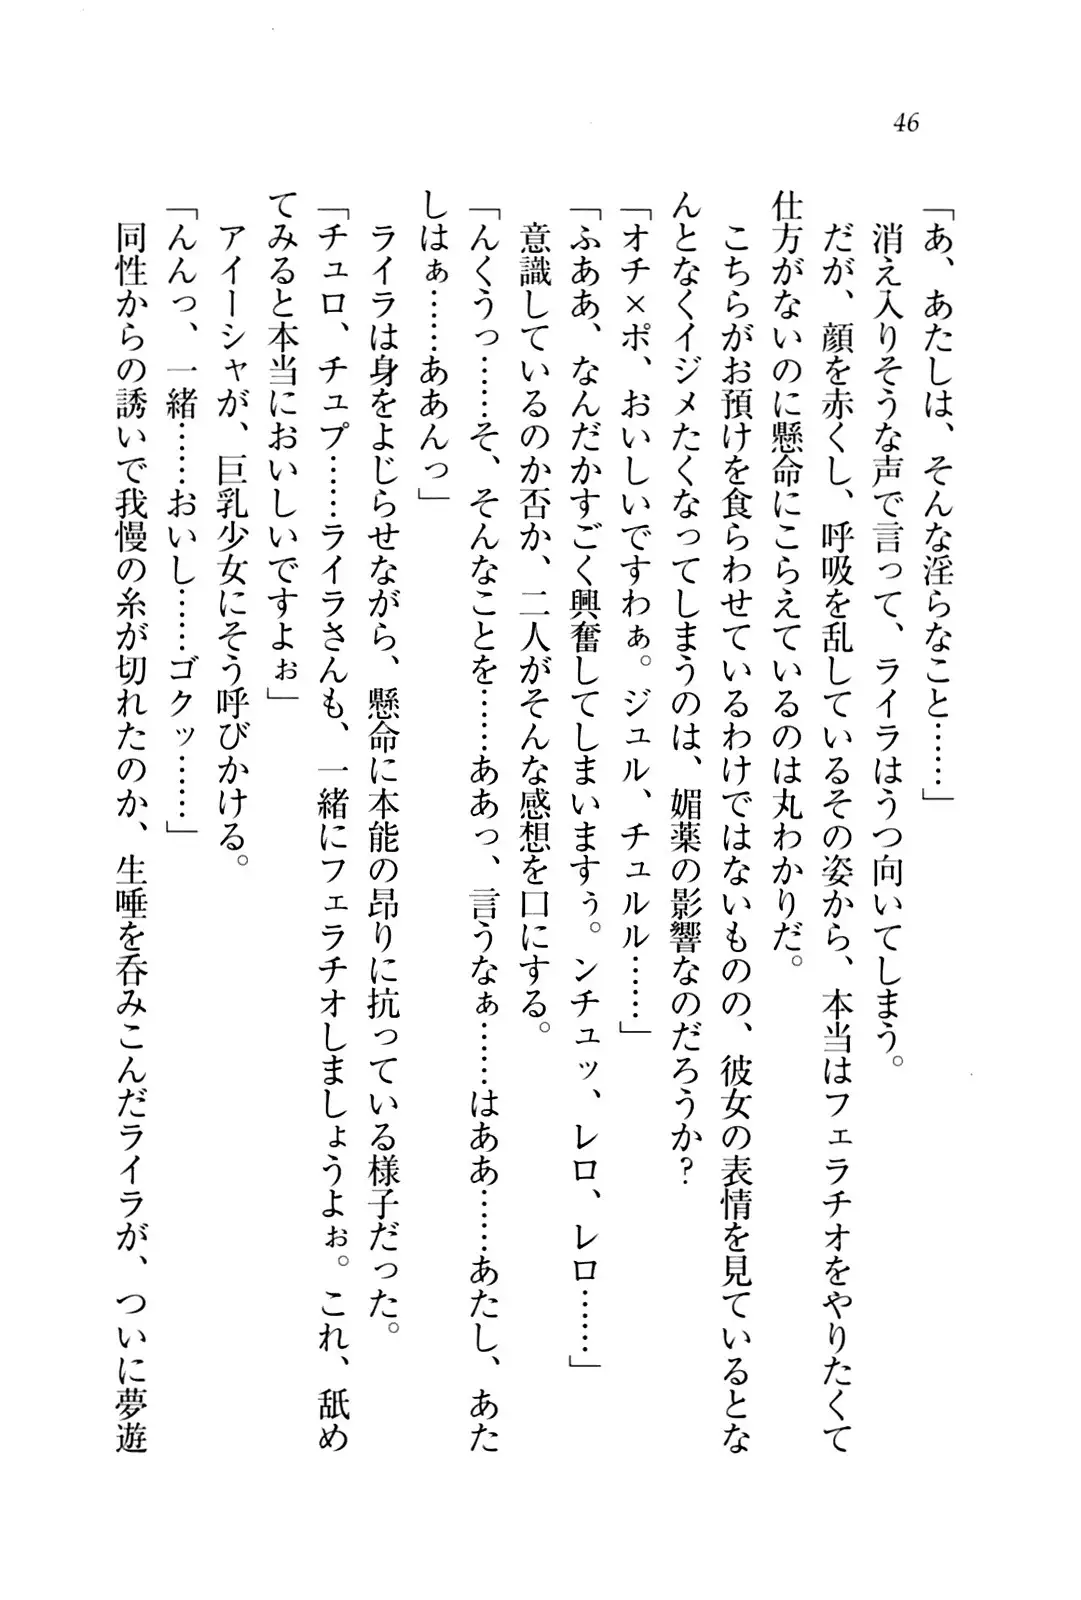 46
「あ、あたしは、そんな淫らなこと……」
消え入りそうな声で言って、ライラはうつ向いてしまう。
だが、顔を赤くし、呼吸を乱しているその姿から、本当はフェラチオをやりたくて
仕方がないのに懸命にこらえているのは丸わかりだ。
こちらがお預けを食らわせているわけではないものの、彼女の表情を見ているとな
んとなくイジメたくなってしまうのは、媚薬の影響なのだろうか?
「オチ×ポ、おいしいですわぁ。ジュル、チュルル……」
「ふああ、なんだかすごく興奮してしまいますぅ。ンチュッ、レロ、レロ……」
意識しているのか否か、二人がそんな感想を口にする。
「んくうっ……そ、そんなことを……ああっ、言うなぁ……はああ……あたし、あた
しはぁ……ああんっ」
ライラは身をよじらせながら、懸命に本能の昂りに抗っている様子だった。
「チュロ、チュプ……ライラさんも、一緒にフェラチオしましょうよぉ。これ、舐め
てみると本当においしいですよぉ」
アイーシャが、巨乳少女にそう呼びかける。
「んんっ、一緒……おいし……ゴクッ……」
同性からの誘いで我慢の糸が切れたのか、生唾を呑みこんだライラが、ついに夢遊